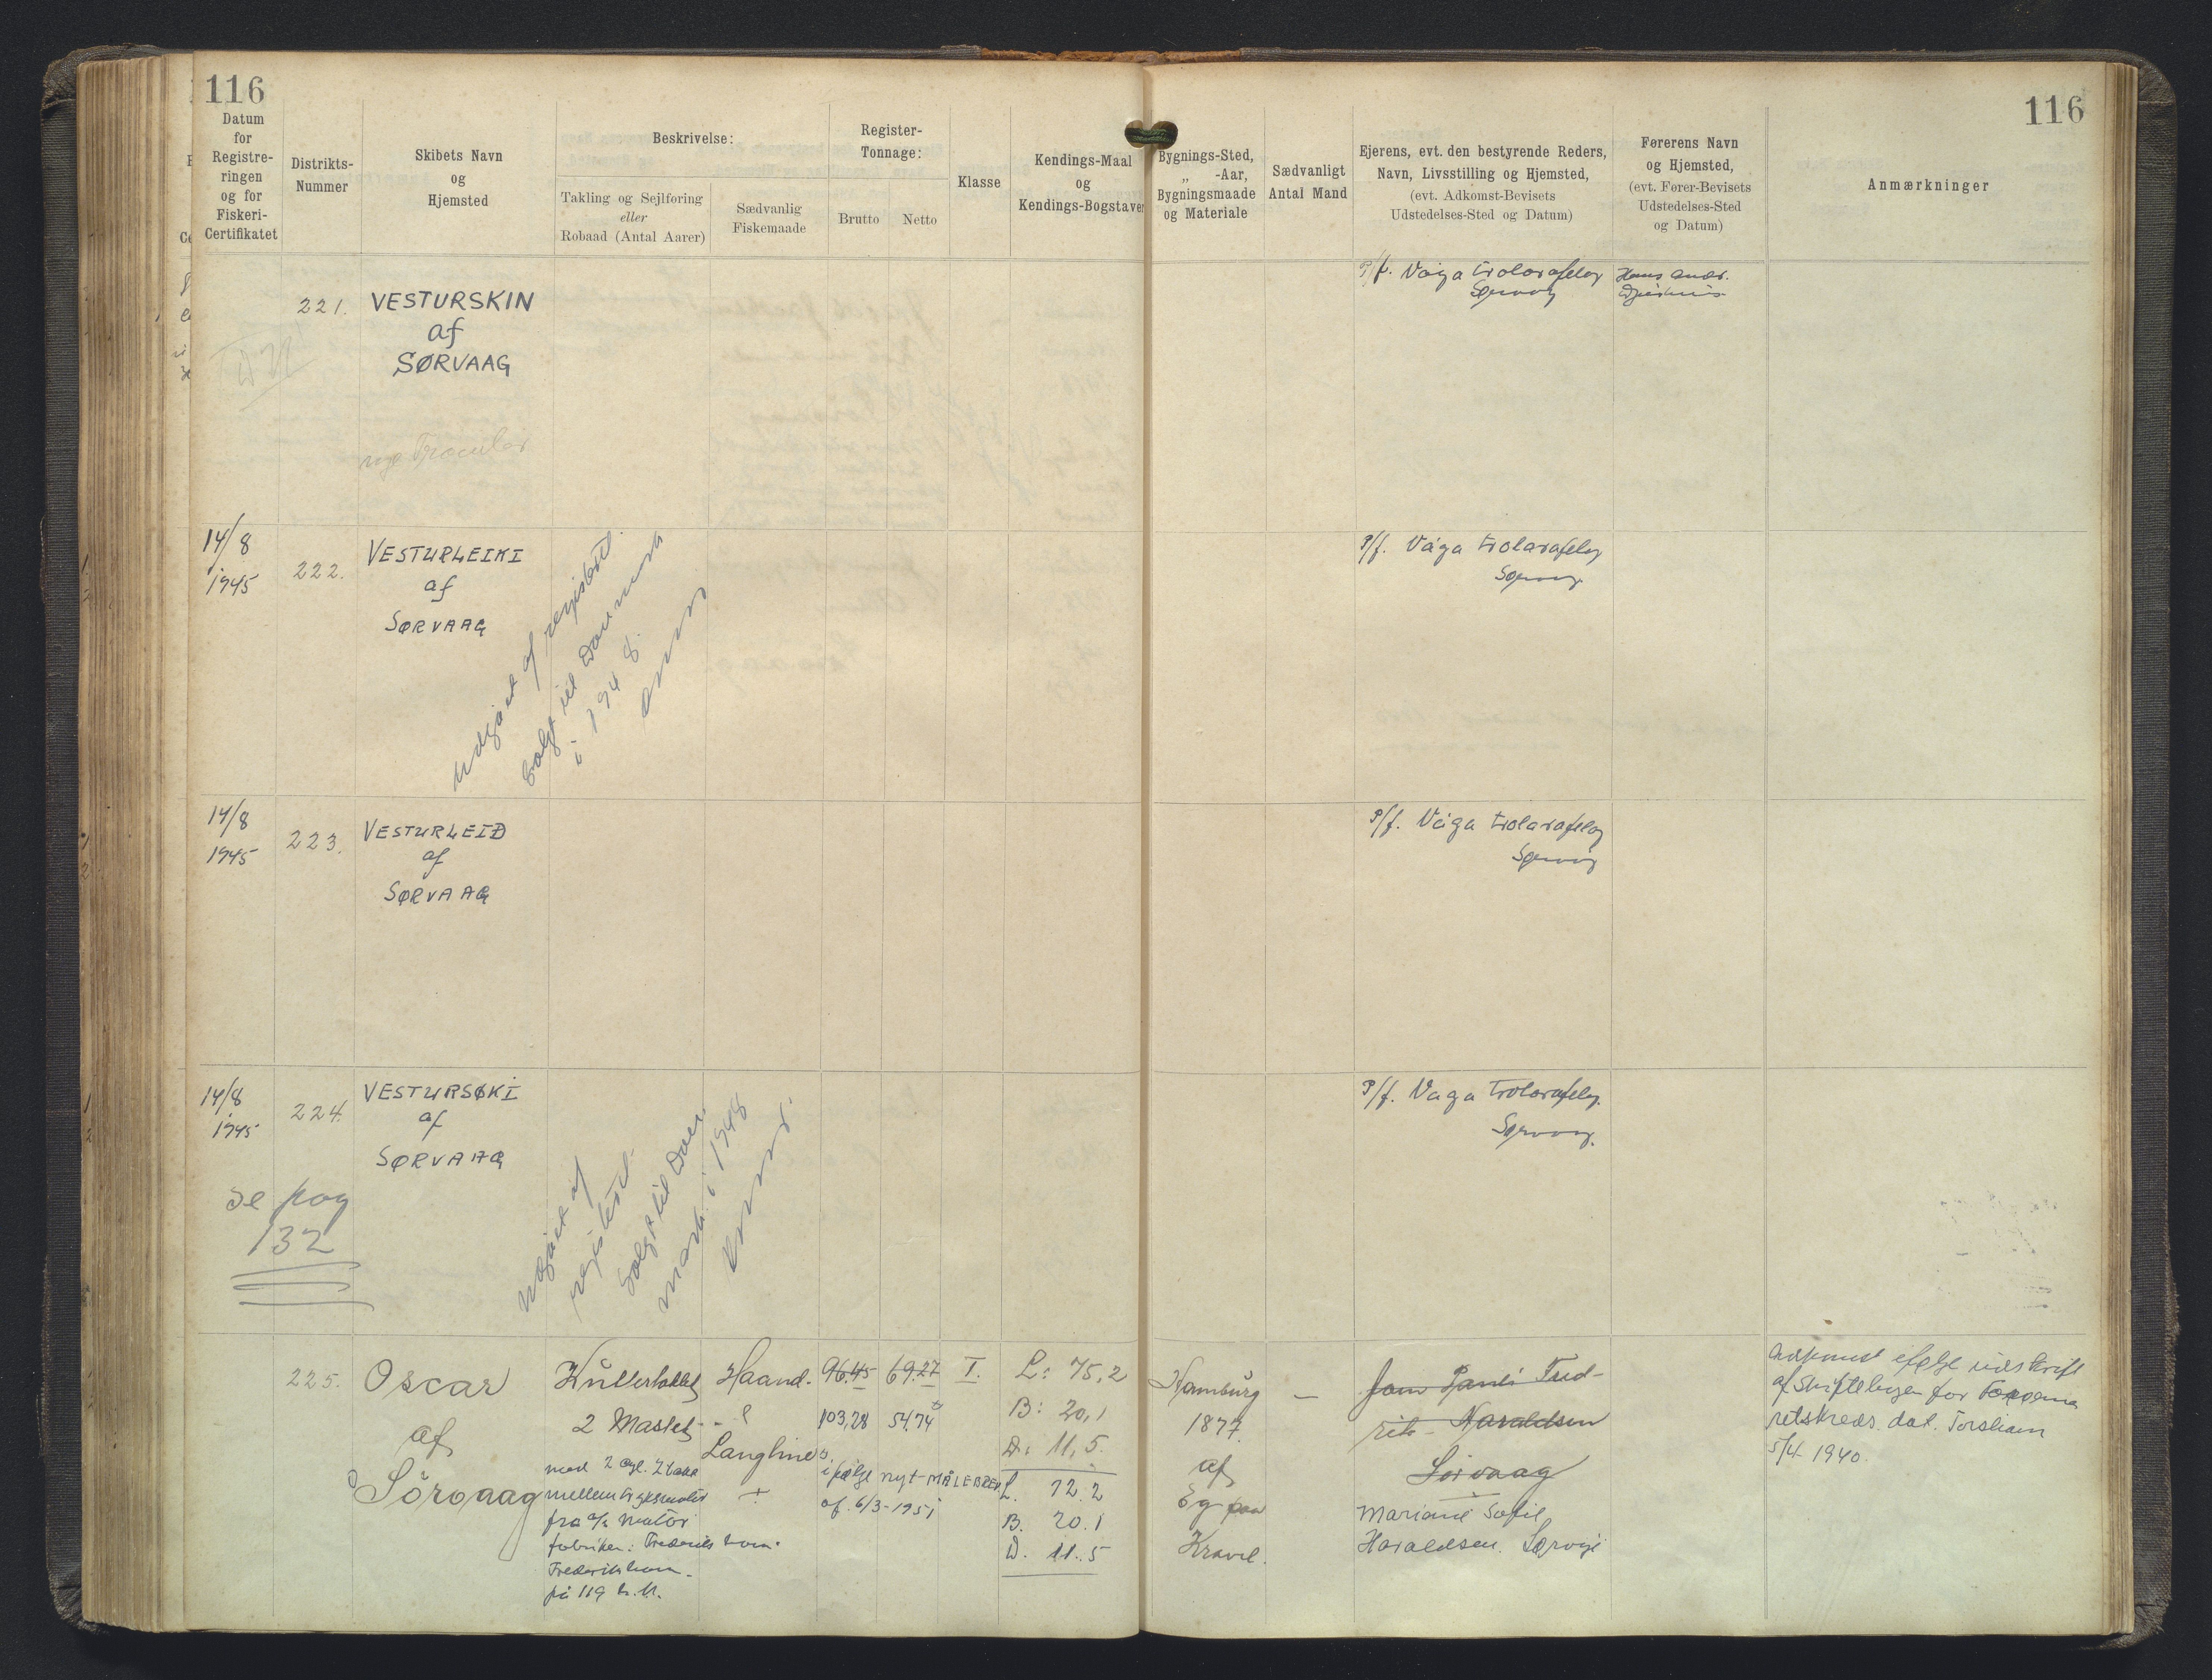 116
116
Datum
for
Registre-
ringen
og for
Fiskeri-
Certifikatet
Distrikts-
Nummer
Skibets Navn
og
Hjemsted
Beskrivelse:
Takling og Sejlføring
eller
Robaad (Antal Aarer)
Sædvanlig
Fiskemaade
Register-
Tonnage:
Brutto
Netto
Klasse
Kendings-Maal
og
Kendings-Bogstaver
Bygnings-Sted,
„ -Aar,
Bygningsmaade
og Materiale
Sædvanligt
Antal Mand
Ejerens, evt. den bestyrende Reders,
Navn, Livsstilling og Hjemsted,
(evt. Adkomst-Bevisets
Udstedelses-Sted og Datum)
Førerens Navn
og Hjemsted,
(evt. Fører-Bevisets
Udstedelses-Sted
og Datum)
Anmærkninger
221.
VESTURSKIN
af
SØRVAAG
nye Trawler
P/f. Vága trolarafelag
Sørvaag
Hans Andr.
14/8
1945
222.
VESTURLEIKI
af
SØRVAAG
udgået af registeret.
Solgt til Danmark
i 1948.
P/f. Vága trolarafelag
Sørvaag
14/8
1945
223.
VESTURLEIÐ
af
SØRVAAG
P/f. Vága trolarafelag
Sørvaag
14/8
1945
224.
VESTURSØKI
af
SØRVAAG
se pag
132
udgået af
registeret.
Solgt til Dan-
mark i 1948
P/f. Vaga trolarafelag.
Sørvaag.
225.
Oscar
af
Sörvaag
Kuttertaklet
2 Mastet
med 2 cyl. 2 takt
mellemtryksmotor
fra A/S Motor
fabriken: Frederikshavn.
Frederikshavn.
på 119 h.k.
Haand- &
Langlines.
96.45
69.27
103,28
54.74
ifølge nyt MÅLEBREV
af. 6/3-1951
I.
L: 75,2
B: 20,1
D: 11,5.
L. 72.2
B. 20.1
D. 11.5
Hamburg
1877.
af
Eg paa
Kravel.
—
Jom Pauli Fred-
rik Haraldsen
Sörvaag
Mariane Sofie
Haraldsen. Sørvági
Adkomst ifølge udskrift
af Skiftebogen for Færøerna
retskreds. dat. Torshavn
5/4 1940.